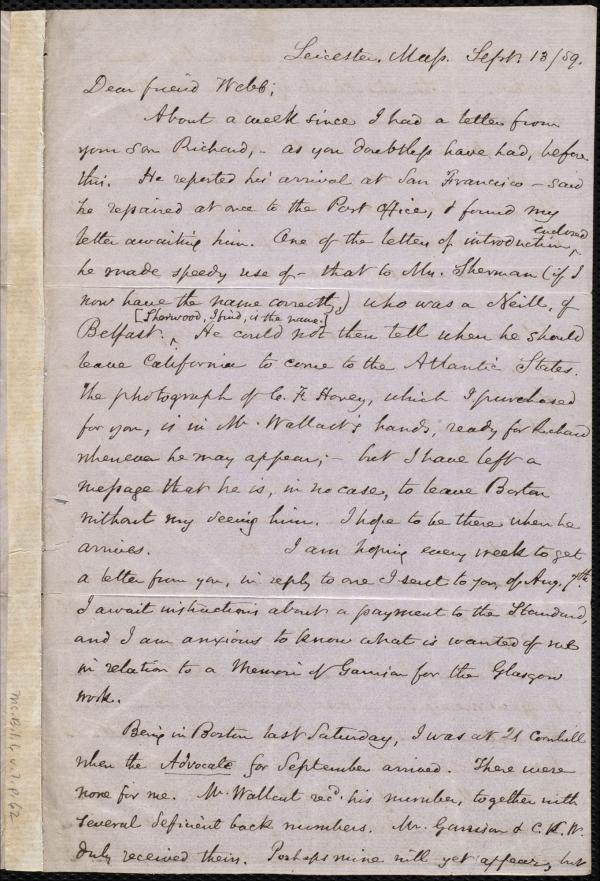 Leicester, Mass. Sept. 13/59.
Dear friend Webb;
About a week since I had a letter from
your son Richard, - as you doubtless have had, before
this. He reported his arrival at San Francisco - said
he repaired at once to the Post Office, & found my
letter awaiting him. One of the letters of introduction, ^ enclosed
he made speedy use of, - that to Mr. Sherman (if I
now have the name correctly,) who was a Neill, of
[Sherwood, I find, is the name.]
Belfast. ^ He could not then tell when he should
leave California to come to the Atlantic States.
The photograph of C. F. Hovey, which I purchased
for you, is in Mr. Wallcut's hands, ready for Richard
whenever he may appear; - but I have left a
message that he is, in no case, to leave Boston
without my seeing him. I hope to be there when he
arrives. I am hoping every week to get
a letter from you, in reply to one I sent to you, of Aug. 7th.
I await instructions about a payment to the Standard,
and I am anxious to know what is wanted of me
in relation to a Memoir of Garrison for the Glasgow
work.
Being in Boston last Saturday, I was at 21 Cornhill
when the Advocate for September arrived. There were
none for me. Mr. Wallcut recd. his number, together with
several deficient back numbers. Mr. Garrison & C. K. W.
duly received theirs. Perhaps mine will yet appear, but
Ms. B. 1. 6 v. 7 p. 62